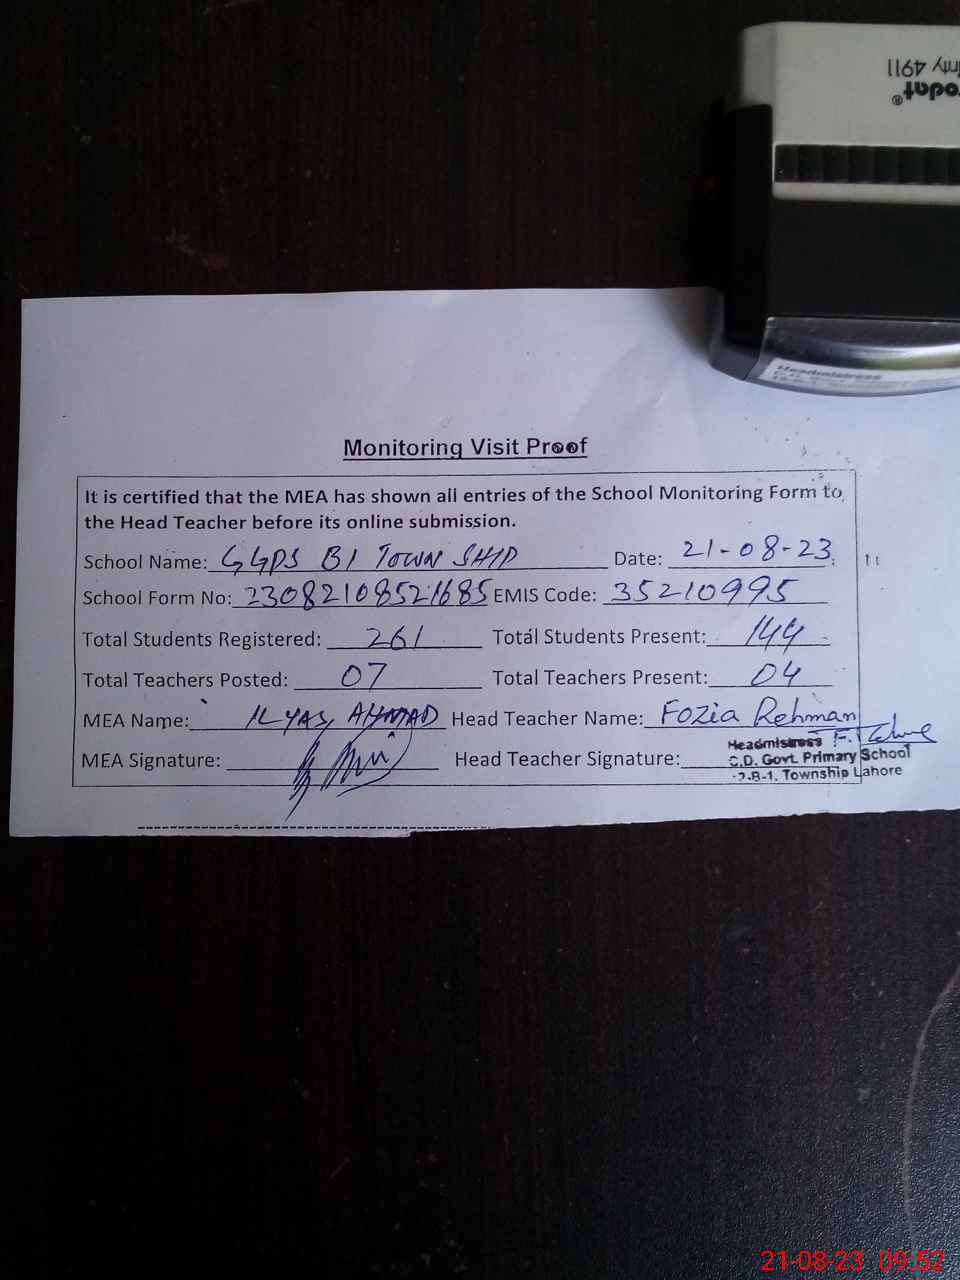 nty 4911
odat®
Headmistress
Monitoring Visit Proof
It is certified that the MEA has shown all entries of the School Monitoring Form to
the Head Teacher before its online submission.
School Name: GGPS B1 TOWN SHIP Date: 21-08-23
School Form No: 23082108521685 EMIS Code: 35210995
Total Students Registered: 261 Total Students Present: 144
Total Teachers Posted: 07 Total Teachers Present: 04
MEA Name: ILYAS AHMAD Head Teacher Name: Fozia Rehman
MEA Signature: Head Teacher Signature:
Headmistress
C.D. Govt. Primary School
-2-B-1, Township Lahore
21-08-23 09:52